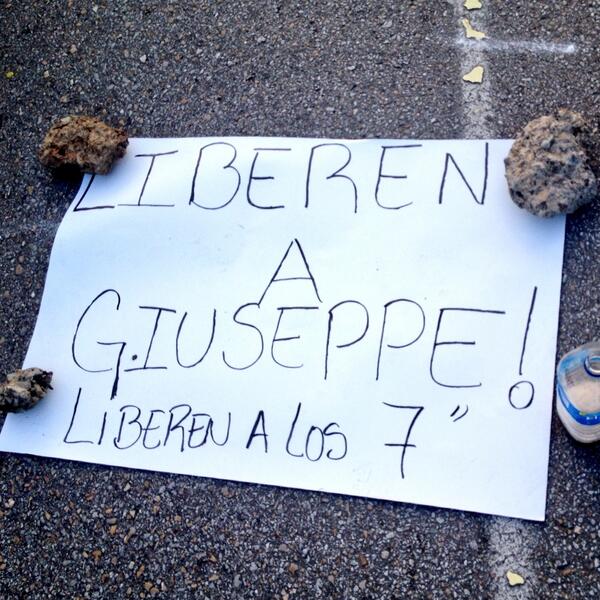 LIBEREN
A
GIUSEPPE!
LIBEREN A LOS 7"